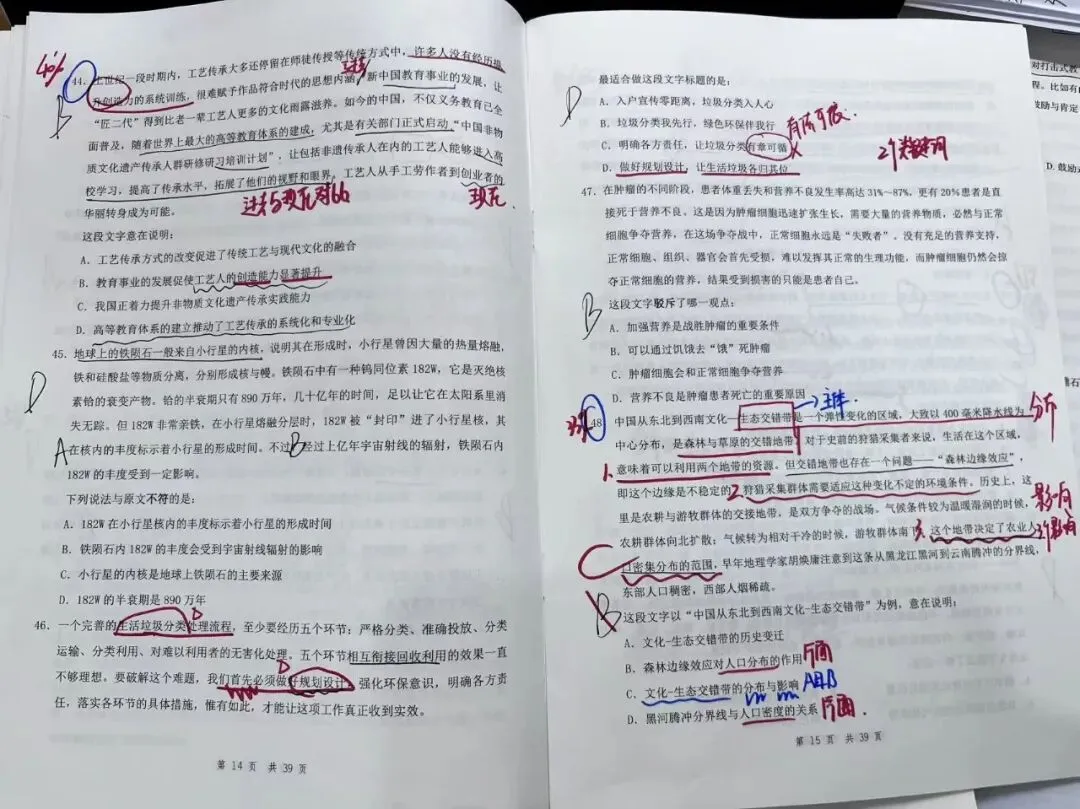 40%
44. 上世纪一段时期内，工艺传承大多还停留在师徒传授等传统方式中，许多人没有经历提
升创造力的系统训练，很难赋予作品符合时代的思想内涵。新中国教育事业的发展，让
“匠二代”得到比老一辈工艺人更多的文化雨露滋养。如今的中国，不仅义务教育已全
面普及，随着世界上最大的高等教育体系的建成，尤其是有关部门正式启动“中国非物
质文化遗产传承人群研修研习培训计划”，让包括非遗传承人在内的工艺人能够进入高
校学习，提高了传承水平，拓展了他们的视野和眼界，工艺人从手工劳作者到创业者的
华丽转身成为可能。
过去与现在对比
现在
B
这段文字意在说明：
A. 工艺传承方式的改变促进了传统工艺与现代文化的融合
B. 教育事业的发展促使工艺人的创造能力显著提升
C. 我国正着力提升非物质文化遗产传承实践能力
D. 高等教育体系的建立推动了工艺传承的系统化和专业化
45. 地球上的铁陨石一般来自小行星的内核，说明其在形成时，小行星曾因大量的热量熔融，
铁和硅酸盐等物质分离，分别形成核与幔。铁陨石中有一种钨同位素 182W，它是灭绝核
素铪的衰变产物。铪的半衰期只有 890 万年，几十亿年的时间，足以让它在太阳系里消
失无踪。但 182W 非常亲铁，在小行星熔融分层时，182W 被“封印”进了小行星核，其
在核内的丰度标示着小行星的形成时间。不过 经过上亿年宇宙射线的辐射，铁陨石内
182W 的丰度受到一定影响。
D
A
B
下列说法与原文不符的是：
A. 182W 在小行星核内的丰度标示着小行星的形成时间
B. 铁陨石内 182W 的丰度会受到宇宙射线辐射的影响
C. 小行星的内核是地球上铁陨石的主要来源
D. 182W 的半衰期是 890 万年
46. 一个完善的生活垃圾分类处理流程，至少要经历五个环节：严格分类、准确投放、分类
运输、分类利用、对难以利用者的无害化处理。五个环节相互衔接回收利用的效果一直
不够理想。要破解这个难题，我们首先必须做好规划设计，强化环保意识，明确各方责
任，落实各环节的具体措施，惟有如此，才能让这项工作真正收到实效。
第 14 页 共 39 页
最适合做这段文字标题的是：
A. 入户宣传零距离，垃圾分类入人心
B. 垃圾分类我先行，绿色环保伴我行
C. 明确各方责任，让垃圾分类有章可循
D. 做好规划设计，让生活垃圾各归其位
D
2个关键词
47. 在肿瘤的不同阶段，患者体重丢失和营养不良发生率高达 31%～87%，更有 20%患者是直
接死于营养不良。这是因为肿瘤细胞迅速扩张生长，需要大量的营养物质，必然与正常
细胞争夺营养，在这场争夺战中，正常细胞永远是“失败者”。没有充足的营养支持，
正常细胞、组织、器官会首先受损，难以发挥其正常的生理功能，而肿瘤细胞仍然会掠
夺正常细胞的营养，结果受到损害的只能是患者自己。
B
这段文字驳斥了哪一观点：
A. 加强营养是战胜肿瘤的重要条件
B. 可以通过饥饿去“饿”死肿瘤
C. 肿瘤细胞会和正常细胞争夺营养
D. 营养不良是肿瘤患者死亡的重要原因
主体
分布
48. 中国从东北到西南文化—生态交错带是一个弹性变化的区域，大致以 400 毫米降水线为
中心分布，是森林与草原的交错地带。对于史前的狩猎采集者来说，生活在这个区域，
1. 意味着可以利用两个地带的资源。但交错地带也存在一个问题——“森林边缘效应”，
即这个边缘是不稳定的 2. 狩猎采集群体需要适应这种变化不定的环境条件。历史上，这
里是农耕与游牧群体的交接地带，是双方争夺的战场。气候条件较为温暖湿润的时候，
农耕群体向北扩散；气候转为相对干冷的时候，游牧群体南下 3. 这个地带决定了农业人
口密集分布的范围，早年地理学家胡焕庸注意到这条从黑龙江黑河到云南腾冲的分界线，
东部人口稠密，西部人烟稀疏。
影响
3个影响
C
B
这段文字以“中国从东北到西南文化-生态交错带”为例，意在说明：
A. 文化-生态交错带的历史变迁
B. 森林边缘效应对人口分布的作用 片面
C. 文化-生态交错带的分布与影响 A且B
D. 黑河腾冲分界线与人口密度的关系 片面.
第 15 页 共 39 页